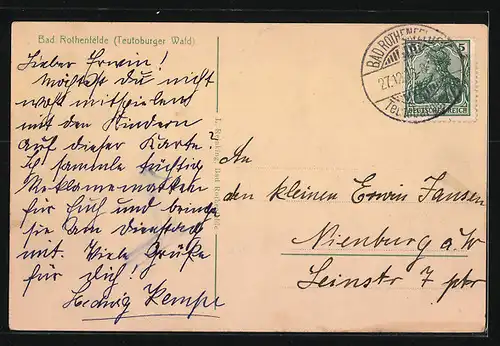 Bad Rothenfelde (Teutoburger Wald)
Lieber Erwin!
Möchtest du nicht
wohl mitspielen
mit den Kindern
auf dieser Karte?
Ich sammle tüchtig
Reklamemarken
für Euch und bringe
sie am Dienstag
mit. Viele Grüße
für dich!
Hedwig Kempe
BAD ROTHENFELDE
27.12
5
DEUTSCHES REICH
Bad Rothenfelde
An
den kleinen Erwin Jansen
Nienburg a/W
Leinstr 7 ptr